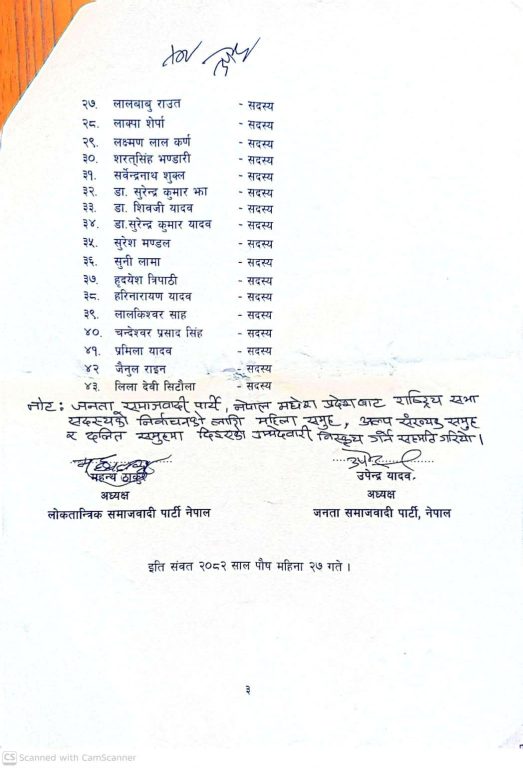 २७. लालबाबु राउत - सदस्य
२८. लाक्पा शेर्पा - सदस्य
२९. लक्ष्मण लाल कर्ण - सदस्य
३०. शरत्सिंह भण्डारी - सदस्य
३१. सर्वेन्द्रनाथ शुक्ल - सदस्य
३२. डा. सुरेन्द्र कुमार झा - सदस्य
३३. डा. शिवजी यादव - सदस्य
३४. डा.सुरेन्द्र कुमार यादव - सदस्य
३५. सुरेश मण्डल - सदस्य
३६. सुनी लामा - सदस्य
३७. हृदयेश त्रिपाठी - सदस्य
३८. हरिनारायण यादव - सदस्य
३९. लालकिश्वर साह - सदस्य
४०. चन्देश्वर प्रसाद सिंह - सदस्य
४१. प्रमिला यादव - सदस्य
४२ जैनुल राइन - सदस्य
४३. लिला देवी सिटौला - सदस्य
नोट: जनता समाजवादी पार्टी, नेपाल मधेश प्रदेशबाट राष्ट्रिय सभा
सदस्यको निर्वाचनको लागि महिला समुह, अल्प संख्यक समुह
र दलित समुहमा दिइएको उम्मेदवारी निस्कृय गर्न सहमति गरियो।
महन्थ ठाकुर उपेन्द्र यादव
अध्यक्ष अध्यक्ष
लोकतान्त्रिक समाजवादी पार्टी नेपाल जनता समाजवादी पार्टी, नेपाल
इति संवत २०८२ साल पौष महिना २७ गते ।
३
CS Scanned with CamScanner